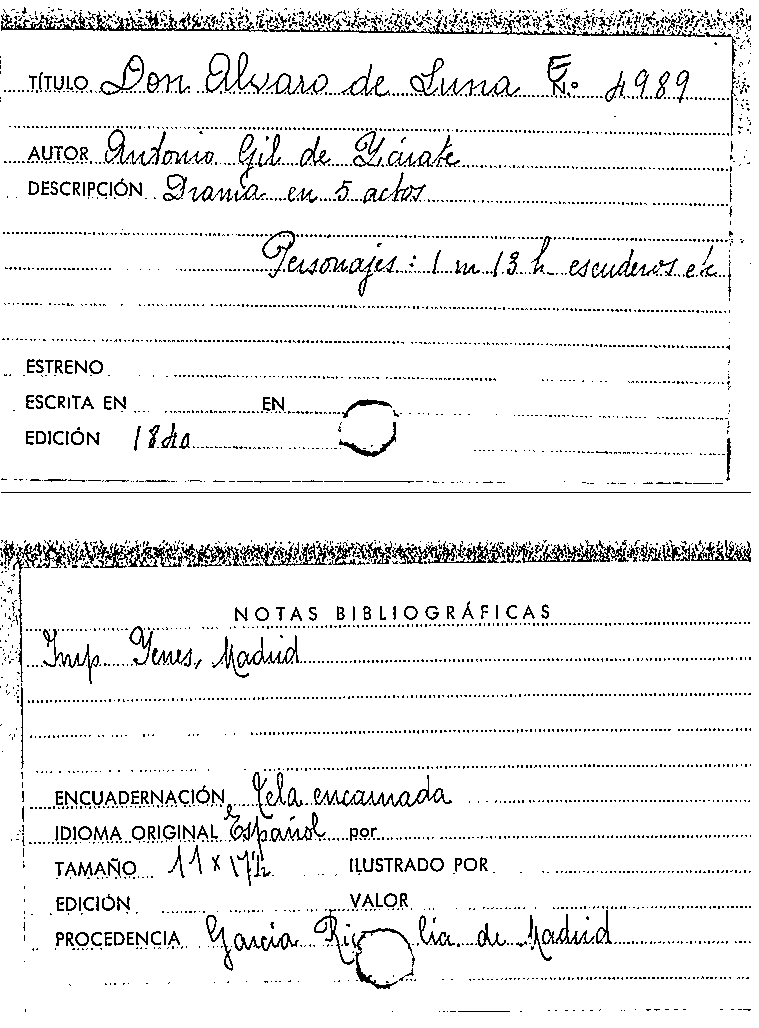 TÍTULO Don Alvaro de Luna E N.º 4989
AUTOR Antonio Gil de Zárate
DESCRIPCIÓN Drama en 5 actos
Personajes: 1 m 13 h escuderos etc
ESTRENO
ESCRITA EN EN
EDICIÓN 1840
NOTAS BIBLIOGRÁFICAS
Imp. Yenes, Madrid
ENCUADERNACIÓN Tela encarnada
IDIOMA ORIGINAL Español por
TAMAÑO 11 x 17½ ILUSTRADO POR
EDICIÓN VALOR
PROCEDENCIA Garcia Rico cia. de Madrid